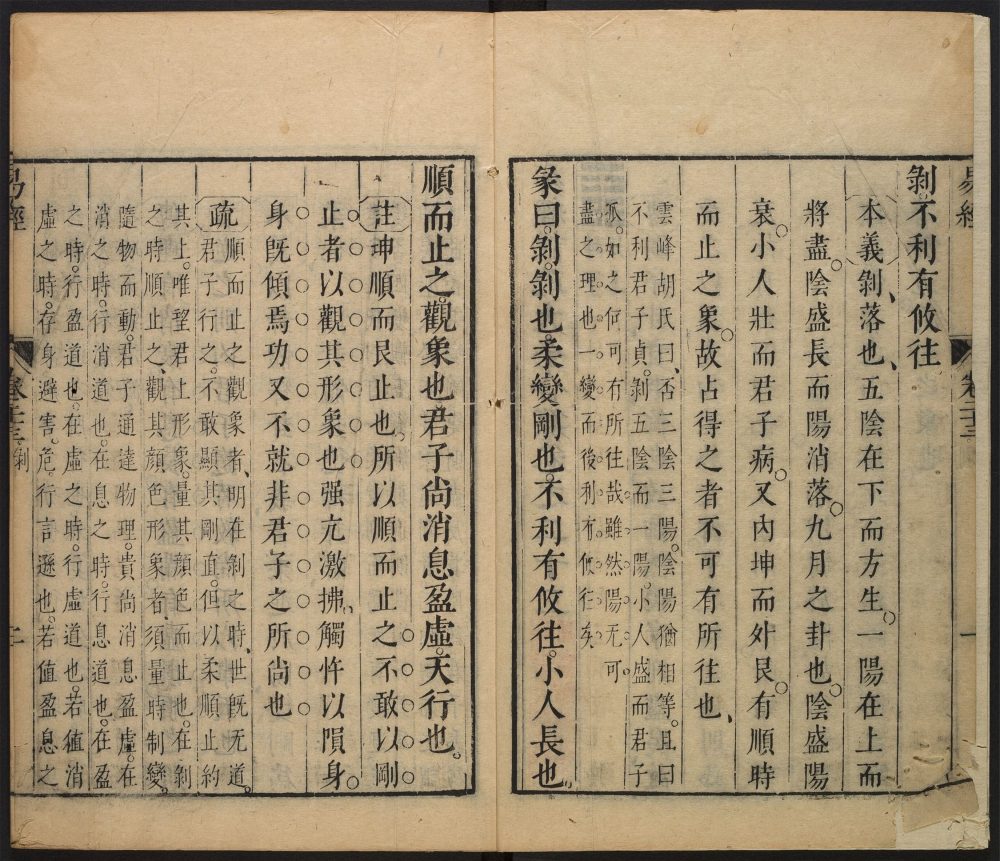 易經
卷二十三
一
剝不利有攸往
本義剝、落也、五陰在下而方生。一陽在上而
將盡陰盛長而陽消落九月之卦也陰盛陽
衰小人壯而君子病又內坤而外艮有順時
而止之象故占得之者不可有所往也、
雲峰胡氏曰、否三陰三陽。陰陽猶相等。且曰
不利君子貞。剝五陰而一陽。小人盛而君子
孤。如之何可有所往哉雖然陽无可
盡之理也一變而後利有攸往矣
彖曰。剝。剝也。柔變剛也。不利有攸往。小人長也。
順而止之。觀象也君子尚消息盈虛。天行也。
註坤順而艮止也。所以順而止之不敢以剛
止者以觀其形象也强亢激拂、觸忤以隕身。
身旣傾焉功又不就非君子之所尚也
疏順而止之觀象者、明在剝之時、世旣无道。
君子行之。不敢顯其剛直。但以柔順止約
其上。唯望君上形象。量其顏色而止也。在剝
之時順止之、觀其顏色形象者、須量時制變。
隨物而動。君子通達物理。貴尚消息盈虛。在
消之時。行消道也。在息之時。行息道也。在盈
之時。行盈道也。在虛之時。行虛道也。若値消
虛之時。存身避害。危。行言遜也。若值盈息之
易經
卷二十三 剝
二